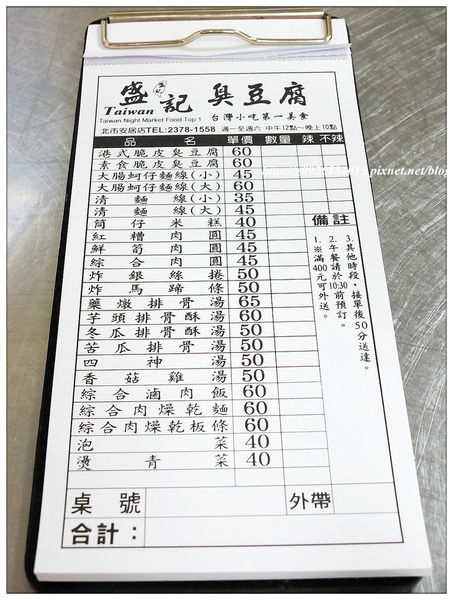 盛記 臭豆腐
Taiwan
Taiwan Night Market Food Top 1 台灣小吃第一美食
北市安居店TEL:2378-1558 週一至週六 中午12點~晚上10點
品名 單價 數量 辣 不辣
港式脆皮臭豆腐 60
素食脆皮臭豆腐 60
大腸蚵仔麵線(小) 45
大腸蚵仔麵線(大) 60
清麵線(小) 35
清麵線(大) 45
筒仔米糕 40
紅糟肉圓 45
鮮筍肉圓 45
綜合肉圓 45
炸銀絲捲 50
炸馬蹄條 50
藥燉排骨湯 65
芋頭排骨酥湯 60
冬瓜排骨酥湯 50
苦瓜排骨湯 50
四神湯 50
香菇雞湯 50
綜合滷肉飯 60
綜合肉燥乾麵 60
綜合肉燥乾板條 60
泡菜 40
燙青菜 40
備註
1.※滿400元可外送。
2.午餐請於10:30前預訂。
3.其他時段,接單後50分送達。
桌號 外帶
合計: